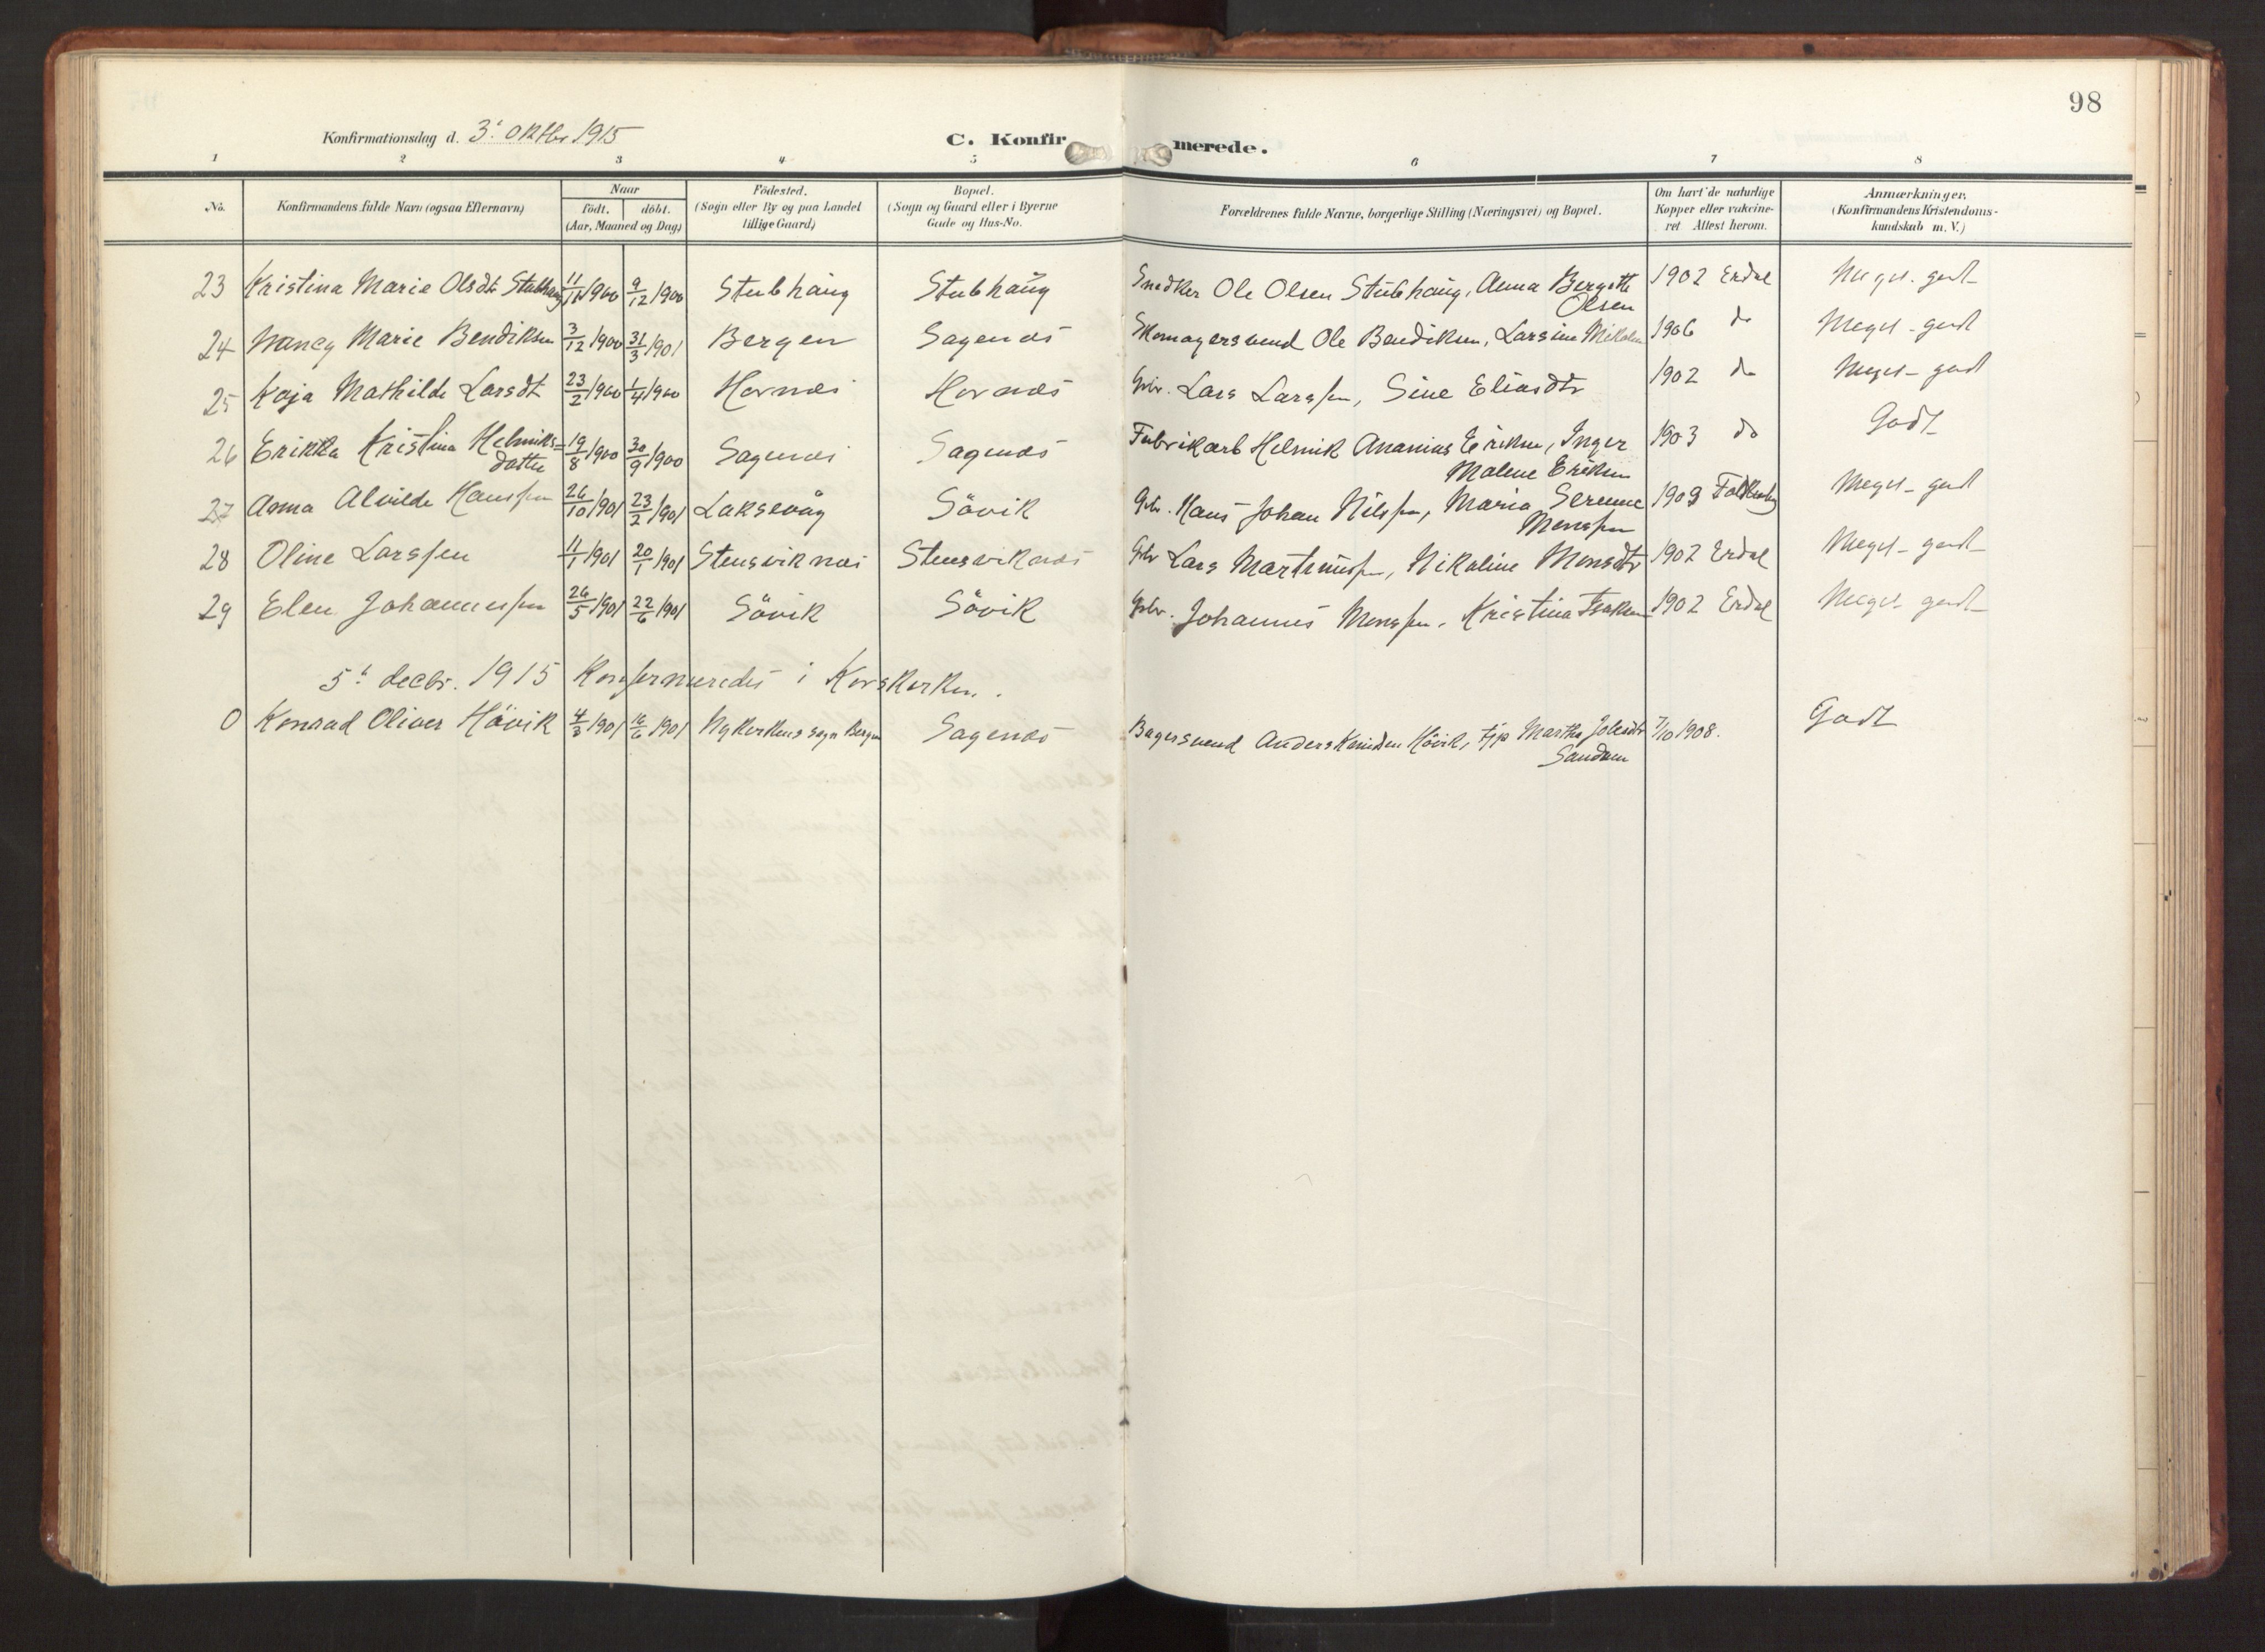 98
Konfirmationsdag d. 3' oktbr 1915
C. Konfirmerede.
1 2 3 4 5 6 7 8
No. Konfirmandens fulde Navn (ogsaa Efternavn) Naar födt. döbt. (Aar, Maaned og Dag) Födested. (Sogn eller By og paa Landet tillige Gaard) Bopæl. (Sogn og Gaard eller i Byerne Gade og Hus-No. Forældrenes fulde Navne, borgerlige Stilling (Næringsvei) og Bopæl. Om havt de naturlige Kopper eller vakcineret Attest herom. Anmærkninger. (Konfirmandens Kristendomskundskab m. V.)
23 Kristina Marie Olsdt Stubhaug 11/11 1900 9/12 1900 Stubhaug Stubhaug Snedker Ole Olsen Stubhaug, Anna Bergitte Olsen 1902 Erdal Meget-godt
24 Nancy Marie Bendiksen 3/12 1900 31/3 1901 Bergen Sagenæs Skomagersvend Ole Bendiksen, Larsine 1906 do Meget-godt
25 Kaja Mathilde Larsdt 23/2 1900 1/4 1900 Hornæs Hornæs Gbr. Lars Larssen, Sine Eliasdtr 1902 do Meget-godt
26 Erikka Kristina Helmiks=datter 19/8 1900 30/9 1900 Sagenæs Sagenæs Fabrikarb Helmik Ananias Eriksen, Inger Malene Eriksen 1903 do Godt
27 Anna Alvilde Hanssen 26/10 1901 23/2 1901 Laksevåg Sövik Gbr. Hans Johan Nilssen, Maria Serenne Monssen 1909 Meget-godt
28 Oline Larssen 11/1 1901 20/1 1901 Stensviknæs Stensviknæs Gbr Lars Martinussen, Nikoline Monsdtr 1902 Erdal Meget-godt
29 Elen Johannessen 26/5 1901 22/6 1901 Sövik Sövik Gbr. Johannes Monssen, Kristina Isaksen 1902 Erdal Meget godt
5' decbr. 1915 Konfirmeredes i Korskirken.
0 Konrad Oliver Hövik 4/3 1901 16/6 1901 Nykirkens sogn Bergen Sagenæs Bagersvend Anders Hövik, Martha Sandven 7/10 1908. Godt